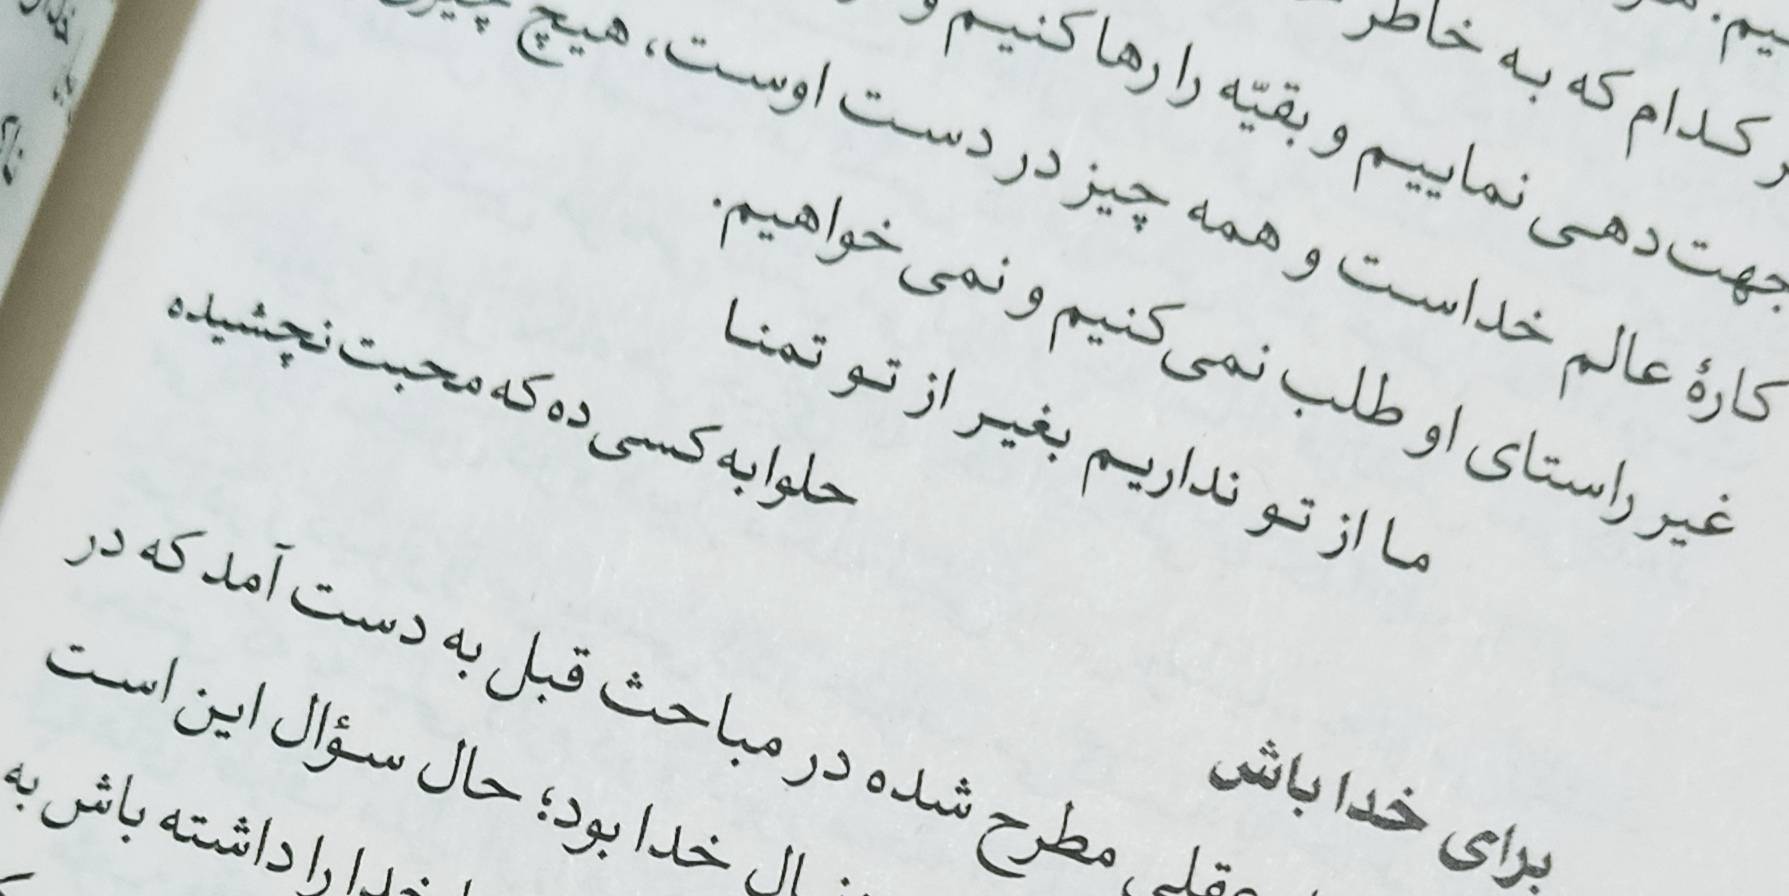 کدام که به خاطر
جهت‌دهی نماییم و بقیّه را رها کنیم و
کارهٔ عالم خداست و همه چیز در دست اوست، هیچ
غیر راستای او طلب نمی‌کنیم و نمی‌خواهیم.
ما از تو نداریم بغیر از تو تمنا
حلوا به کسی ده که محبت نچشیده
برای خدا باش
مطرح شده در مباحث قبل به دست آمد که در
خدا بود؛ حال سؤال این است
خدا را داشته باش به